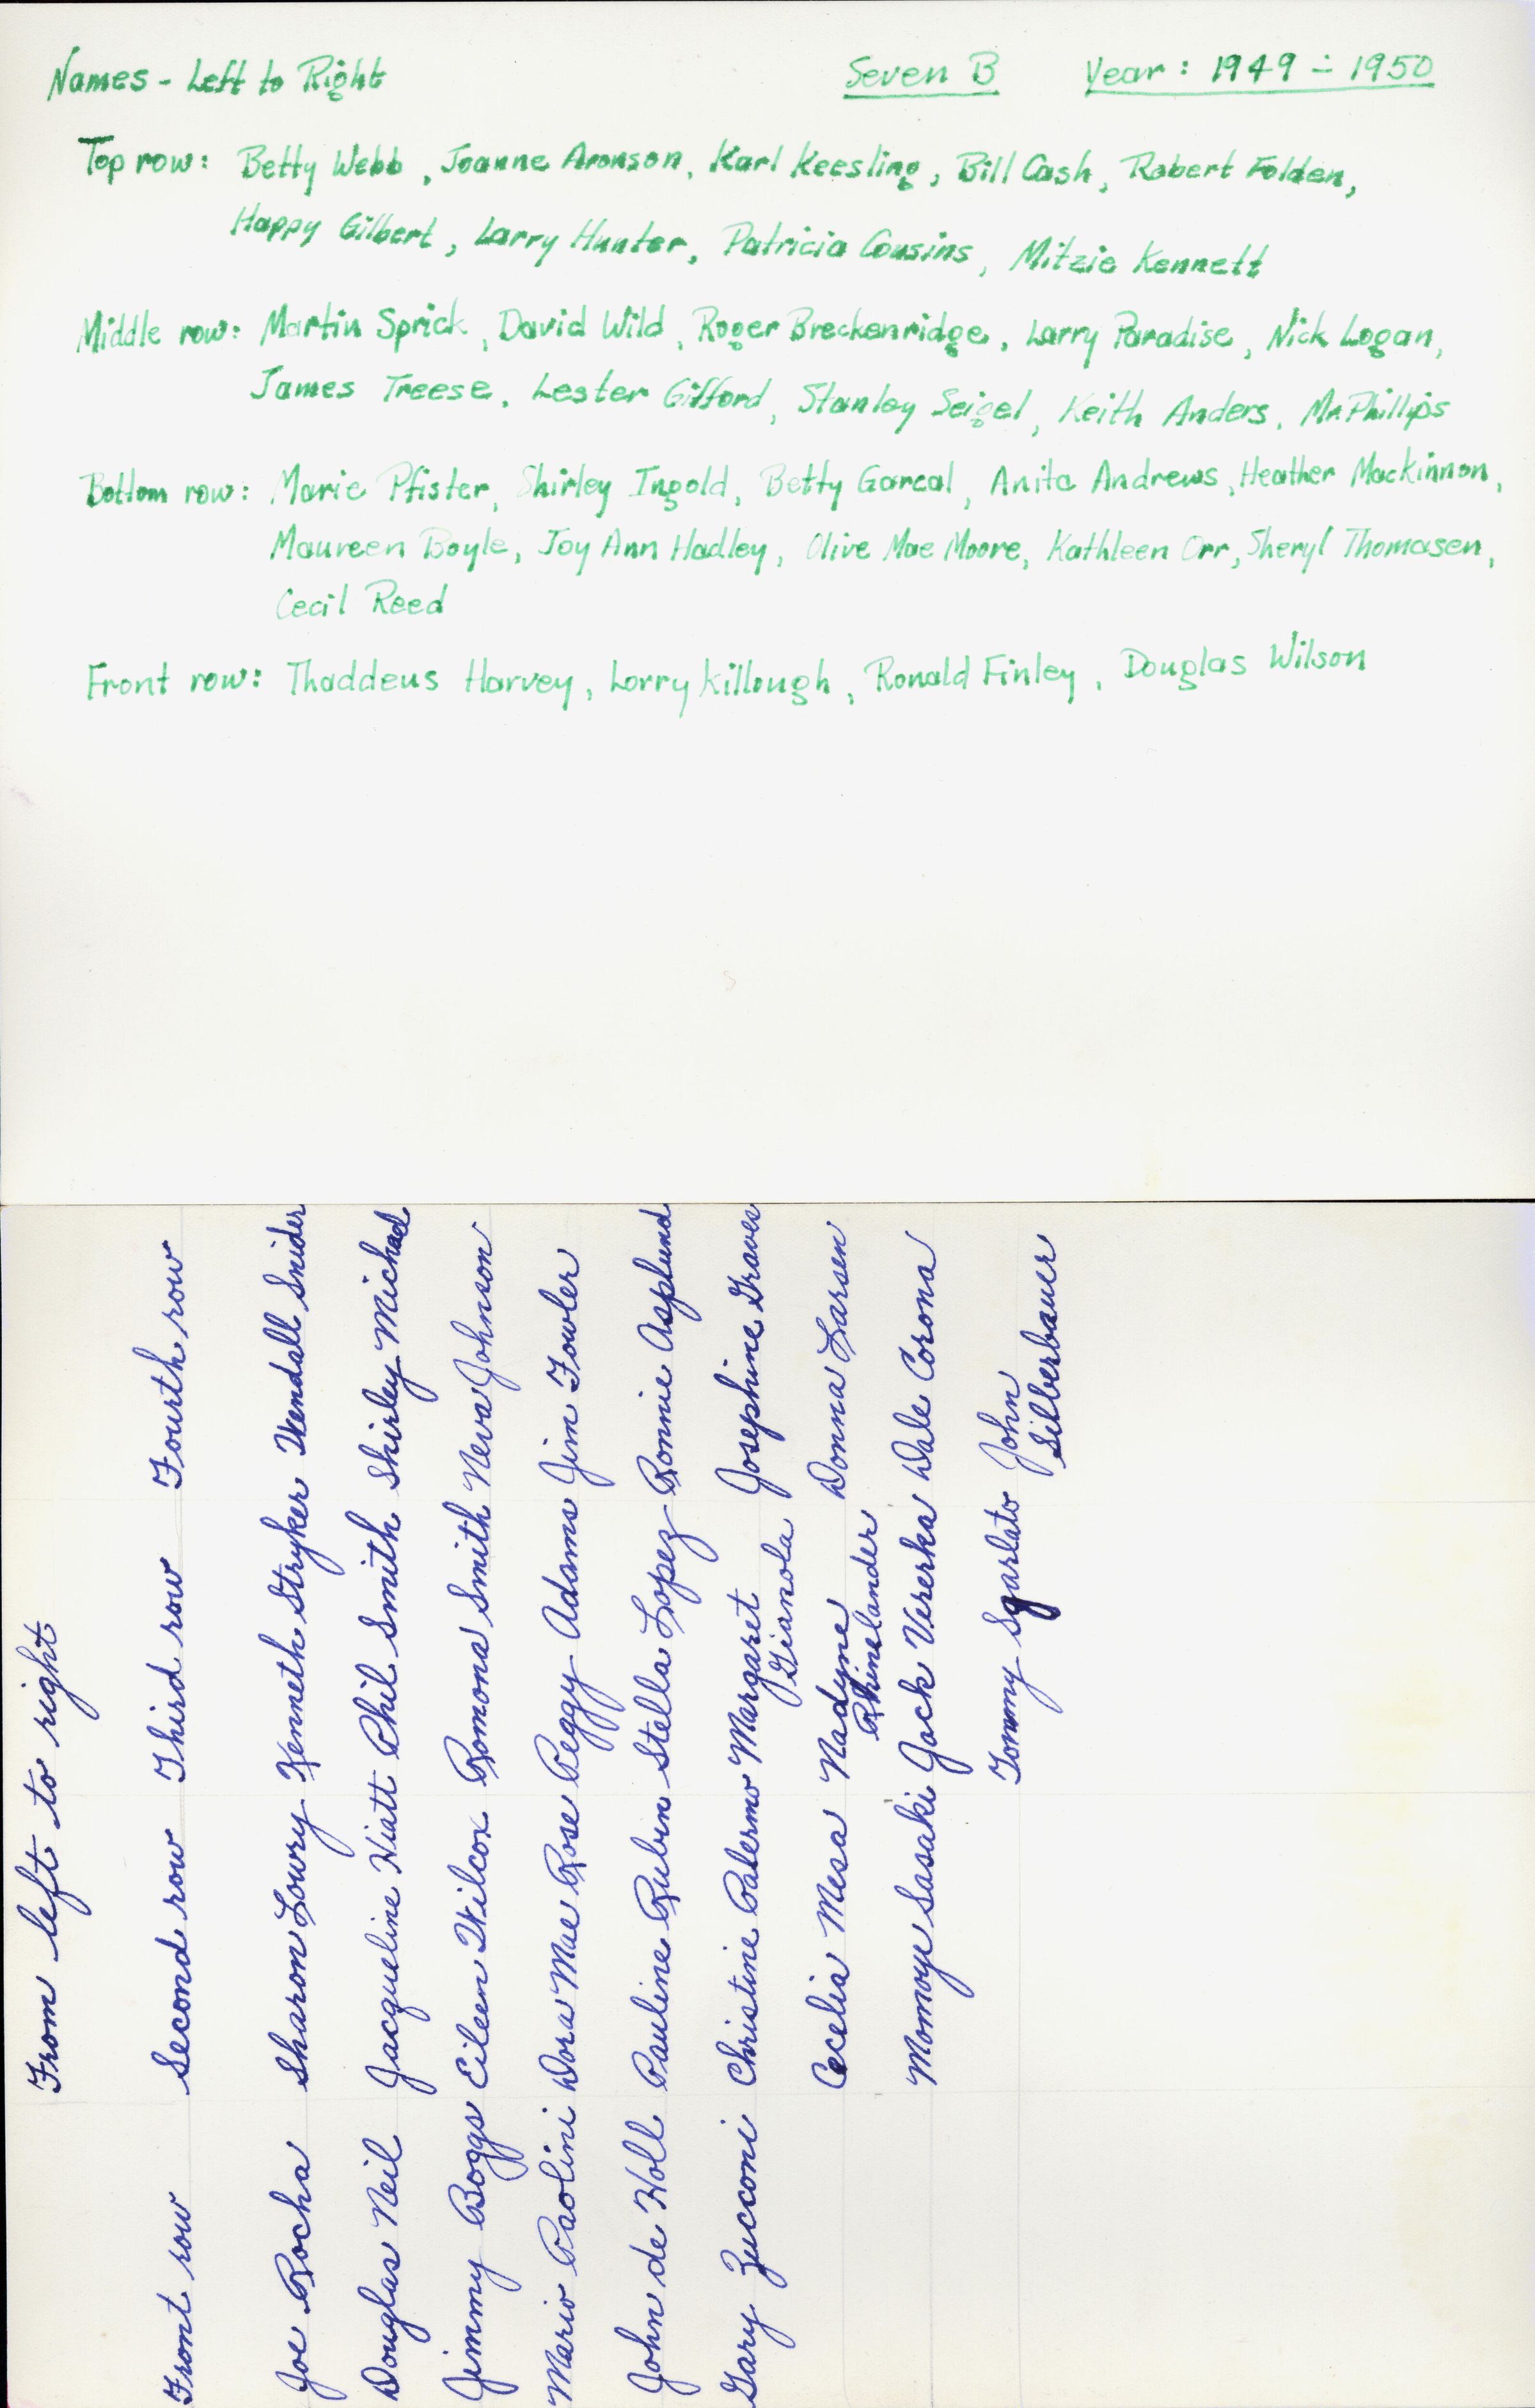 Names - Left to Right Seven B Year: 1949 - 1950
Top row: Betty Webb, Joanne Aronson, Karl Keesling, Bill Cash, Robert Folden,
Happy Gilbert, Larry Hunter, Patricia Cousins, Mitzie Kennett
Middle row: Martin Sprick, David Wild, Roger Breckenridge, Larry Paradise, Nick Logan,
James Treese, Lester Gifford, Stanley Seigel, Keith Anders, Mr. Phillips
Bottom row: Marie Pfister, Shirley Ingold, Betty Garcal, Anita Andrews, Heather Mackinnon,
Maureen Boyle, Joy Ann Hadley, Olive Mae Moore, Kathleen Orr, Sheryl Thomasen,
Cecil Reed
Front row: Thaddeus Harvey, Lorry Killough, Ronald Finley, Douglas Wilson
From left to right
Front row Second row Third row Fourth row
Joe Rocha Sharon Lowry Kenneth Stryker Wendall Snider
Douglas Neil Jacqueline Hiatt Phil Smith Shirley Michael
Jimmy Boggs Eileen Wilcox Romona Smith Neva Johnson
Mario Paolini Dora Mae Rose Peggy Adams Jim Fowler
John de Holl Pauline Rubin Stella Lopez Ronnie Asplund
Gary Zucconi Christine Palermo Margaret Gianola Josephine Graves
Cecelia Mesa Nadyne Rhinelander Donna Larsen
Momoye Sasaki Jack Vererka Dale Corona
Tommy Sgarlato John Silberbauer